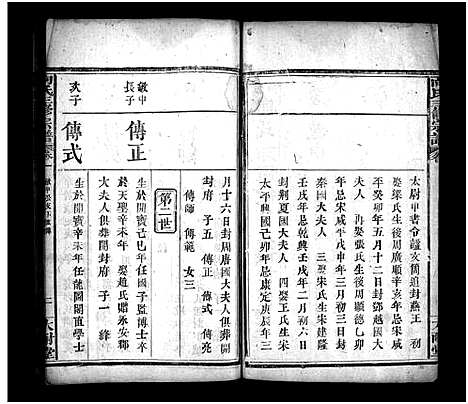 太尉中書令謹亥簡追封燕王 初
娶梁氏生後周廣順辛亥年宋咸
平癸卯年五月十二日封鄧越國大
夫人 再娶張氏生後周顯德乙卯
年宋咸平戊申年三月初三日封
秦國大夫人 三娶宋氏生宋建隆
壬戌年乾興壬戌年二月初六日
封荆夏國大夫人 四娶王氏生宋
太平興國己卯年忌康定庚辰年三
月十六日封周唐國大夫人俱葬開
封府 子五 傳正 傳式 傳亮
傳師 傳範 女三
第二世
敏中長子 傳正
生於 年任國子監博士卒
於天聖辛未年 娶趙氏贈永安郡
大夫人俱葬開封府 子一 絳
次子 傳式
生於開寶辛未年任龍圖閣直學士